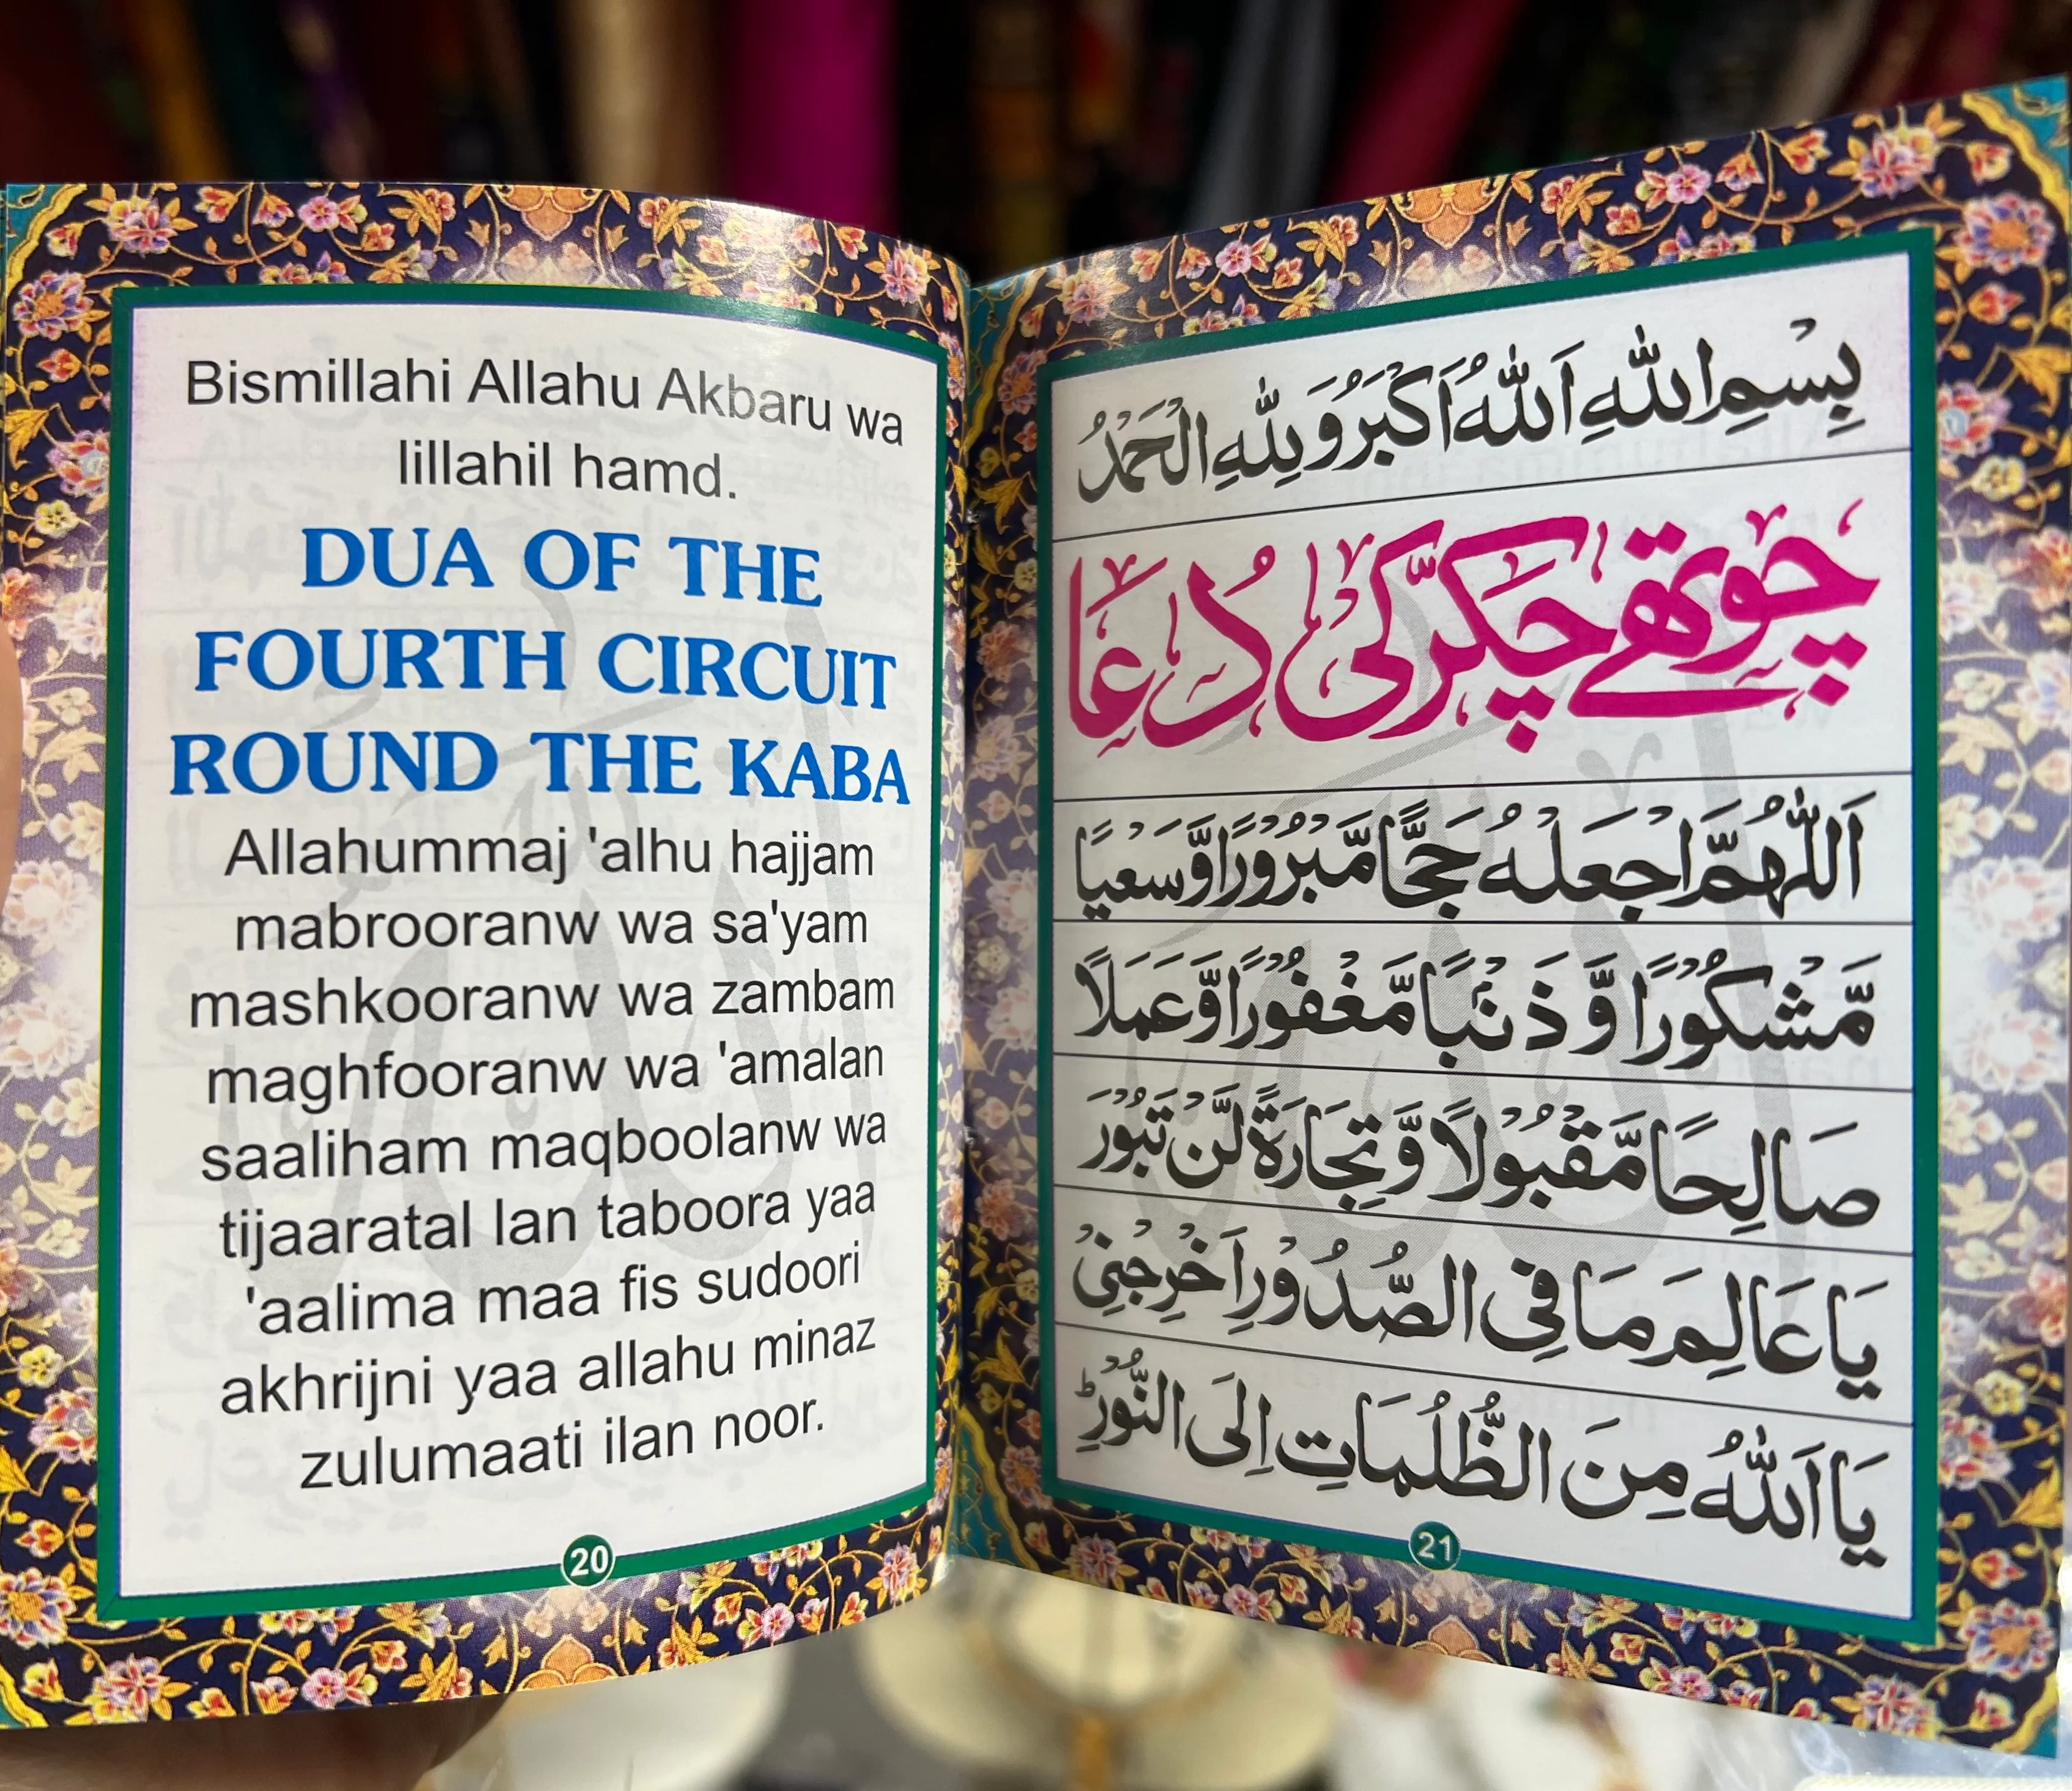 Bismillahi Allahu Akbaru wa
lillahil hamd.
DUA OF THE
FOURTH CIRCUIT
ROUND THE KABA
Allahummaj 'alhu hajjam
mabrooranw wa sa'yam
mashkooranw wa zambam
maghfooranw wa 'amalan
saaliham maqboolanw wa
tijaaratal lan taboora yaa
'aalima maa fis sudoori
akhrijni yaa allahu minaz
zulumaati ilan noor.
20
بِسْمِ اللّٰهِ اَللّٰهُ اَكْبَرُ وَلِلّٰهِ الْحَمْدُ
چوتھے چکّر کی دُعَا
اَللّٰهُمَّ اجْعَلْهُ حَجًّا مَّبْرُوْرًا وَّسَعْيًا
مَّشْكُوْرًا وَّ ذَنْۢبًا مَّغْفُوْرًا وَّعَمَلًا
صَالِحًا مَّقْبُوْلًا وَّ تِجَارَةً لَّنْ تَبُوْرَ
يَا عَالِمَ مَا فِى الصُّدُوْرِ اَخْرِجْنِىْ
يَا اَللّٰهُ مِنَ الظُّلُمَاتِ اِلَى النُّوْرِؕ
21